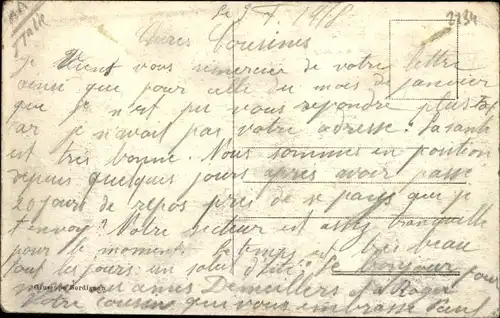 Le 9 1918
Chères Cousines
Je Vient vous remercier de votre lettre
ainsi que pour celle du mois de janvier
que je n'est pu vous repondre plus tot
car je n'avait pas votre adresse. La santé
est très bonne. Nous sommes en position
depuis quelques jours après avoir passe
20 jours de repos près de ce pays que je
t'envoy? Votre secteur est assez tranquille
pour le moment. Le temps est très beau
tout les jours un soleil d'été. Le bonjour pour
nous
Giuseppe Bordignon
Votre cousin qui vous embrasse Paul
2134
Italie